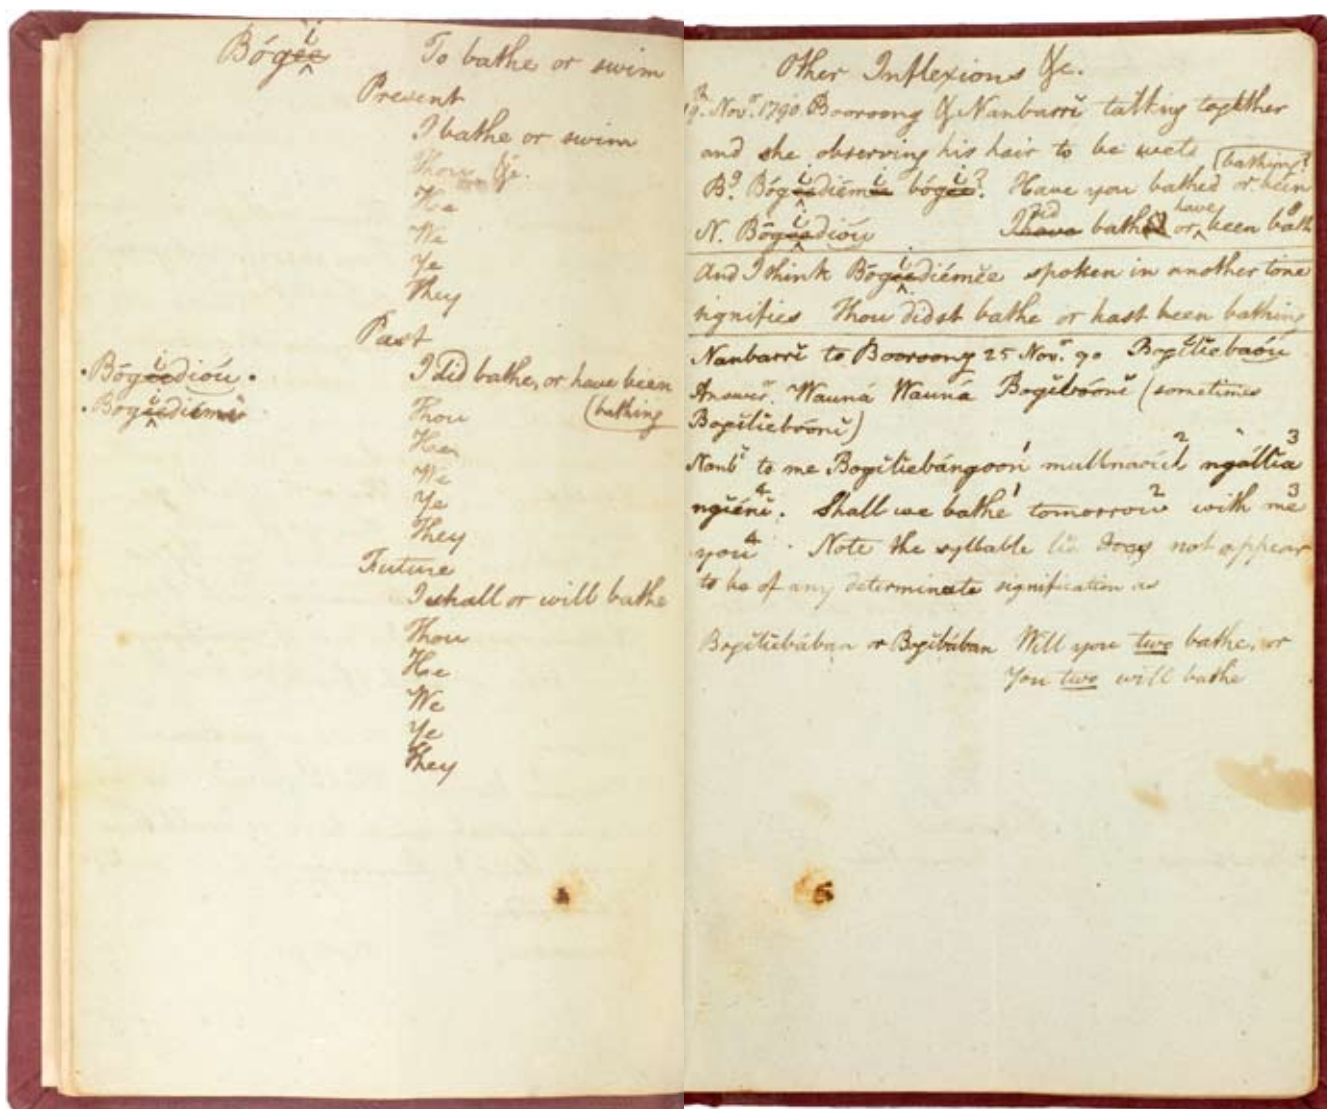 Bógi To bathe or swim
Present
I bathe or swim
Thou &c.
He
We
Ye
They
Past
Bógidióu. I did bathe, or have been
Bogidiémi Thou (bathing
He
We
Ye
They
Future
I shall or will bathe
Thou
He
We
Ye
They
Other Inflexions &c.
9. Novr. 1790. Booroong & Nanbarrĭ talking together
and she observing his hair to be wet (bathing?
Bg. Bógidiémi bógi? Have you bathed or been
N. Bógidióu I did bathe or have been bath
And I think Bógidiémĭe spoken in another tone
signifies Thou didst bathe or hast been bathing
Nanbarrĭ to Booroong 25 Novr. 90 Bogĭlĭebaóu
Answer. Wauná Wauná Bogĭbóonĭ (sometimes
Bogĭlĭebóonĭ)
Nanbĭ to me Bogĭlĭebángoon 1 mullnaóul 2 ngállĭa 3
ngĭénĭ 4. Shall we bathe 1 tomorrow 2 with me 3
you 4. Note the syllable lĭe does not appear
to be of any determinate signification as
Bogĭlĭebában or Bogĭbában Will you two bathe, or
You two will bathe